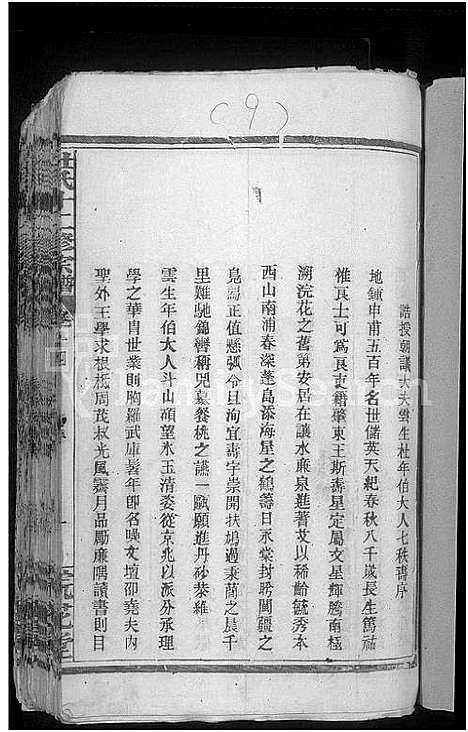 (9)
誥授朝議大夫雲生杜年伯大人七秩壽序
地鍾申甫五百年名世儲英天紀春秋八千歲長生篤祜
惟良士可為良吏籍肇東王斯壽星定屬文星輝騰南極
溯浣花之舊第安居在讓水廉泉進蓍艾以稀齡毓秀本
西山南浦春深蓬島添海屋之鶴籌日永棠封聆閩疆之
鳧舄正值懸弧令旦洵宜壽宇崇開扶鳩過秉蘭之晨千
里難馳錦轡稱兕慕餐桃之讌一甌願進丹砂恭維
雲生年伯大人斗山碩望氷玉清姿從京兆以派分承理
學之華胄世業則胸羅武庫髫年即名噪文壇卻堯夫內
聖外王學求根柢周茂叔光風霽月品勵廉隅讀書則目
杜氏十二修宗譜
卷十四
浣花堂
FamilySearch